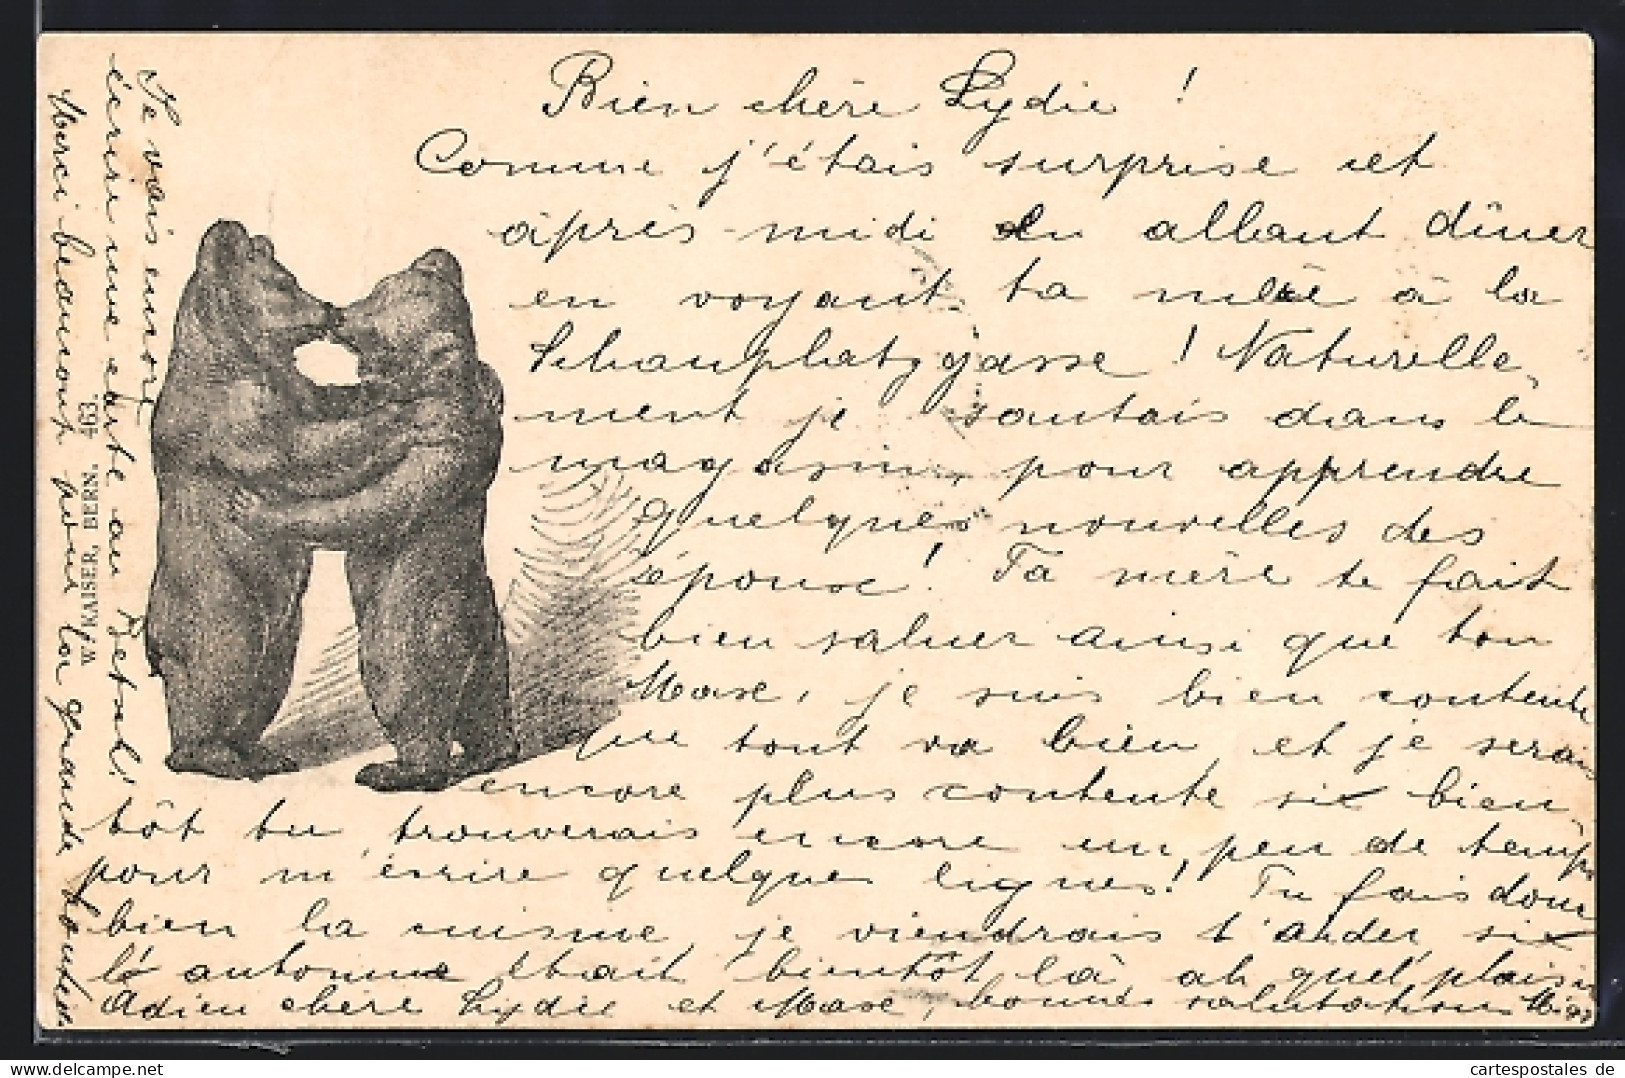 Bien chère Lydie !
Comme j'étais surprise cet
après-midi en allant dîner
en voyant ta mère à la
Schauplatzgasse ! Naturelle-
ment je sautais dans le
magasin, pour apprendre
quelques nouvelles des
époux ! Ta mère te fait
bien saluer ainsi que ton
Max, je suis bien contente
que tout va bien et je serais
encore plus contente si bien-
tôt tu trouverais encore un peu de temps
pour m'écrire quelques lignes! Tu fais donc
bien la cuisine, je viendrais t'aider, si
l'automne était bientôt là ah quel plaisir
Adieu chère Lydie et Max, bonnes salutations
Je vais encore
écrire une carte au
Merci beaucoup pour la grande
W. KAISER, BERN. 463.
cartespostales de
delcampe.net